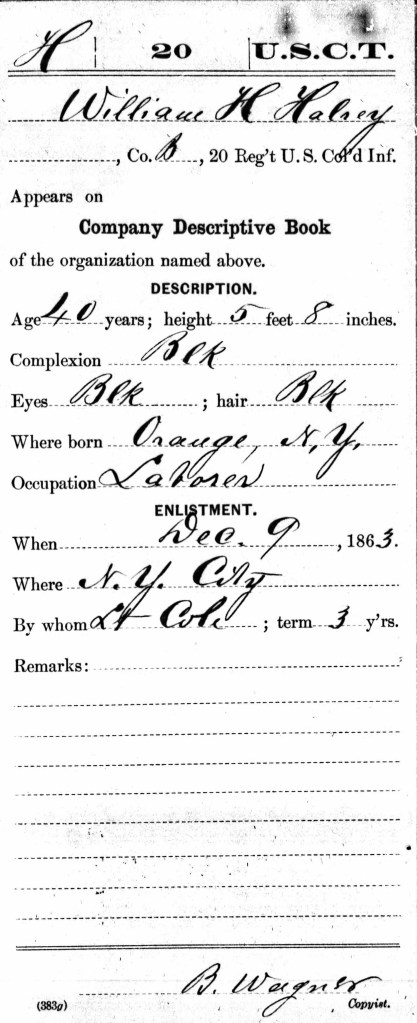 H | 20 | U.S.C.T.
William H Halsey
, Co. B, 20 Reg't U. S. Col'd Inf.
Appears on
Company Descriptive Book
of the organization named above.
DESCRIPTION.
Age 40 years; height 5 feet 8 inches.
Complexion Blk
Eyes Blk ; hair Blk
Where born Orange, N.Y.
Occupation Laborer
ENLISTMENT.
When Dec. 9, 1863.
Where N.Y. City
By whom Lt Cole ; term 3 y'rs.
Remarks:
B. Wagner
(383g) Copyist.